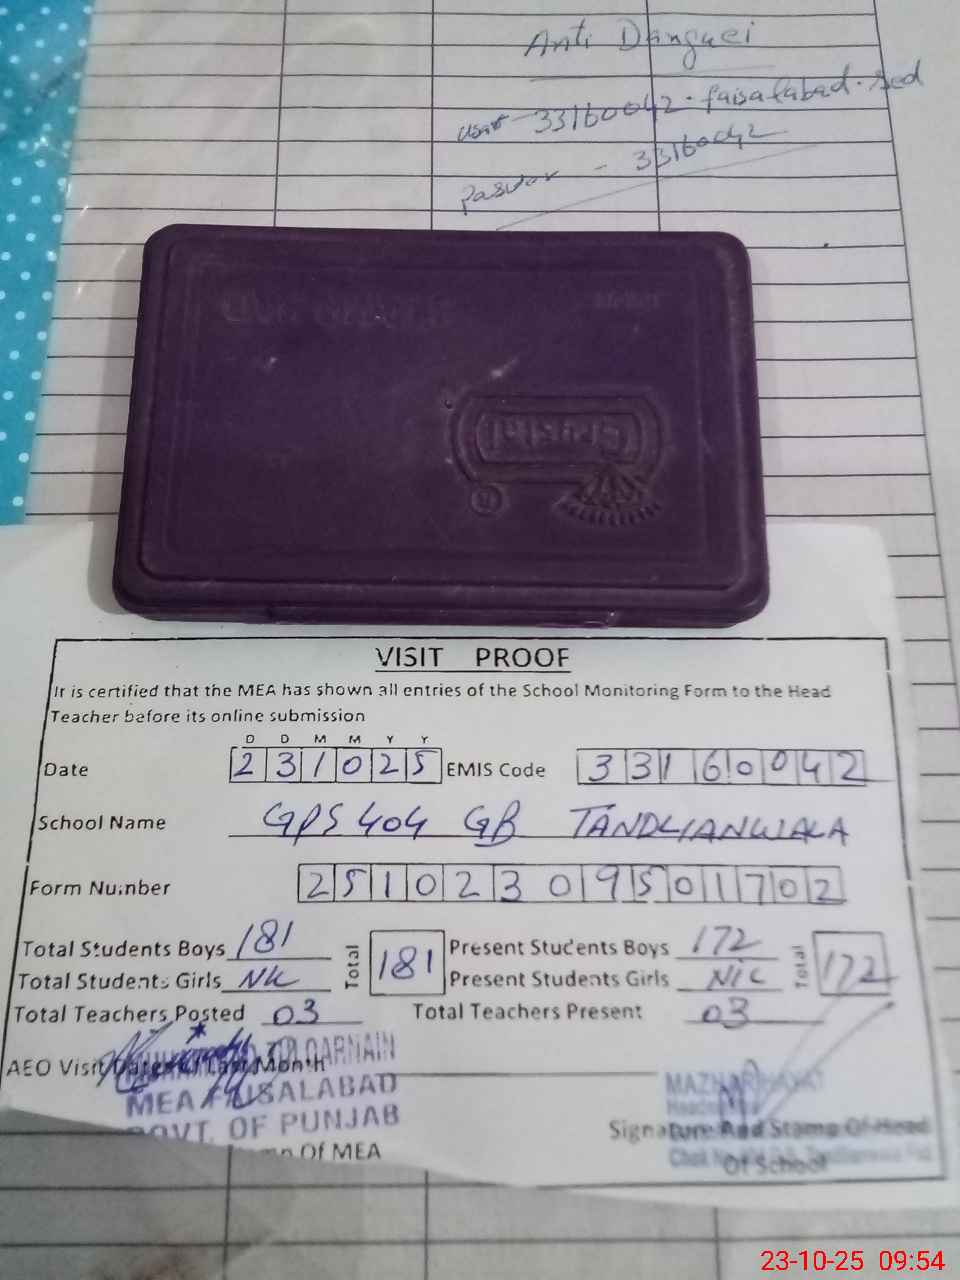 Anti Denguei
user 33160042.faisalabad.sed
Paswor - 33160042
Crystal
VISIT PROOF
It is certified that the MEA has shown all entries of the School Monitoring Form to the Head
Teacher before its online submission
D D M M Y Y
Date 231025 EMIS Code 33160042
School Name GPS 404 GB TANDLIANWALA
Form Number 25102309501702
Total Students Boys 181 Total 181 Present Students Boys 172 Total 172
Total Students Girls NIL Present Students Girls NIL
Total Teachers Posted 03 Total Teachers Present 03
AEO Visit Dates Of Last Month
ZULQARNAIN
MEA FAISALABAD
GOVT. OF PUNJAB
Of MEA
MAZHAR HAYAT
Signature And Stamp Of Head
Of School
23-10-25 09:54